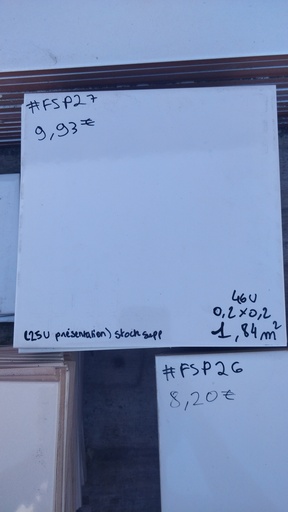 #FSP27
9,93€
46U
0,2x0,2
1,84m²
(25U présentation) stock supp
#FSP26
8,20€